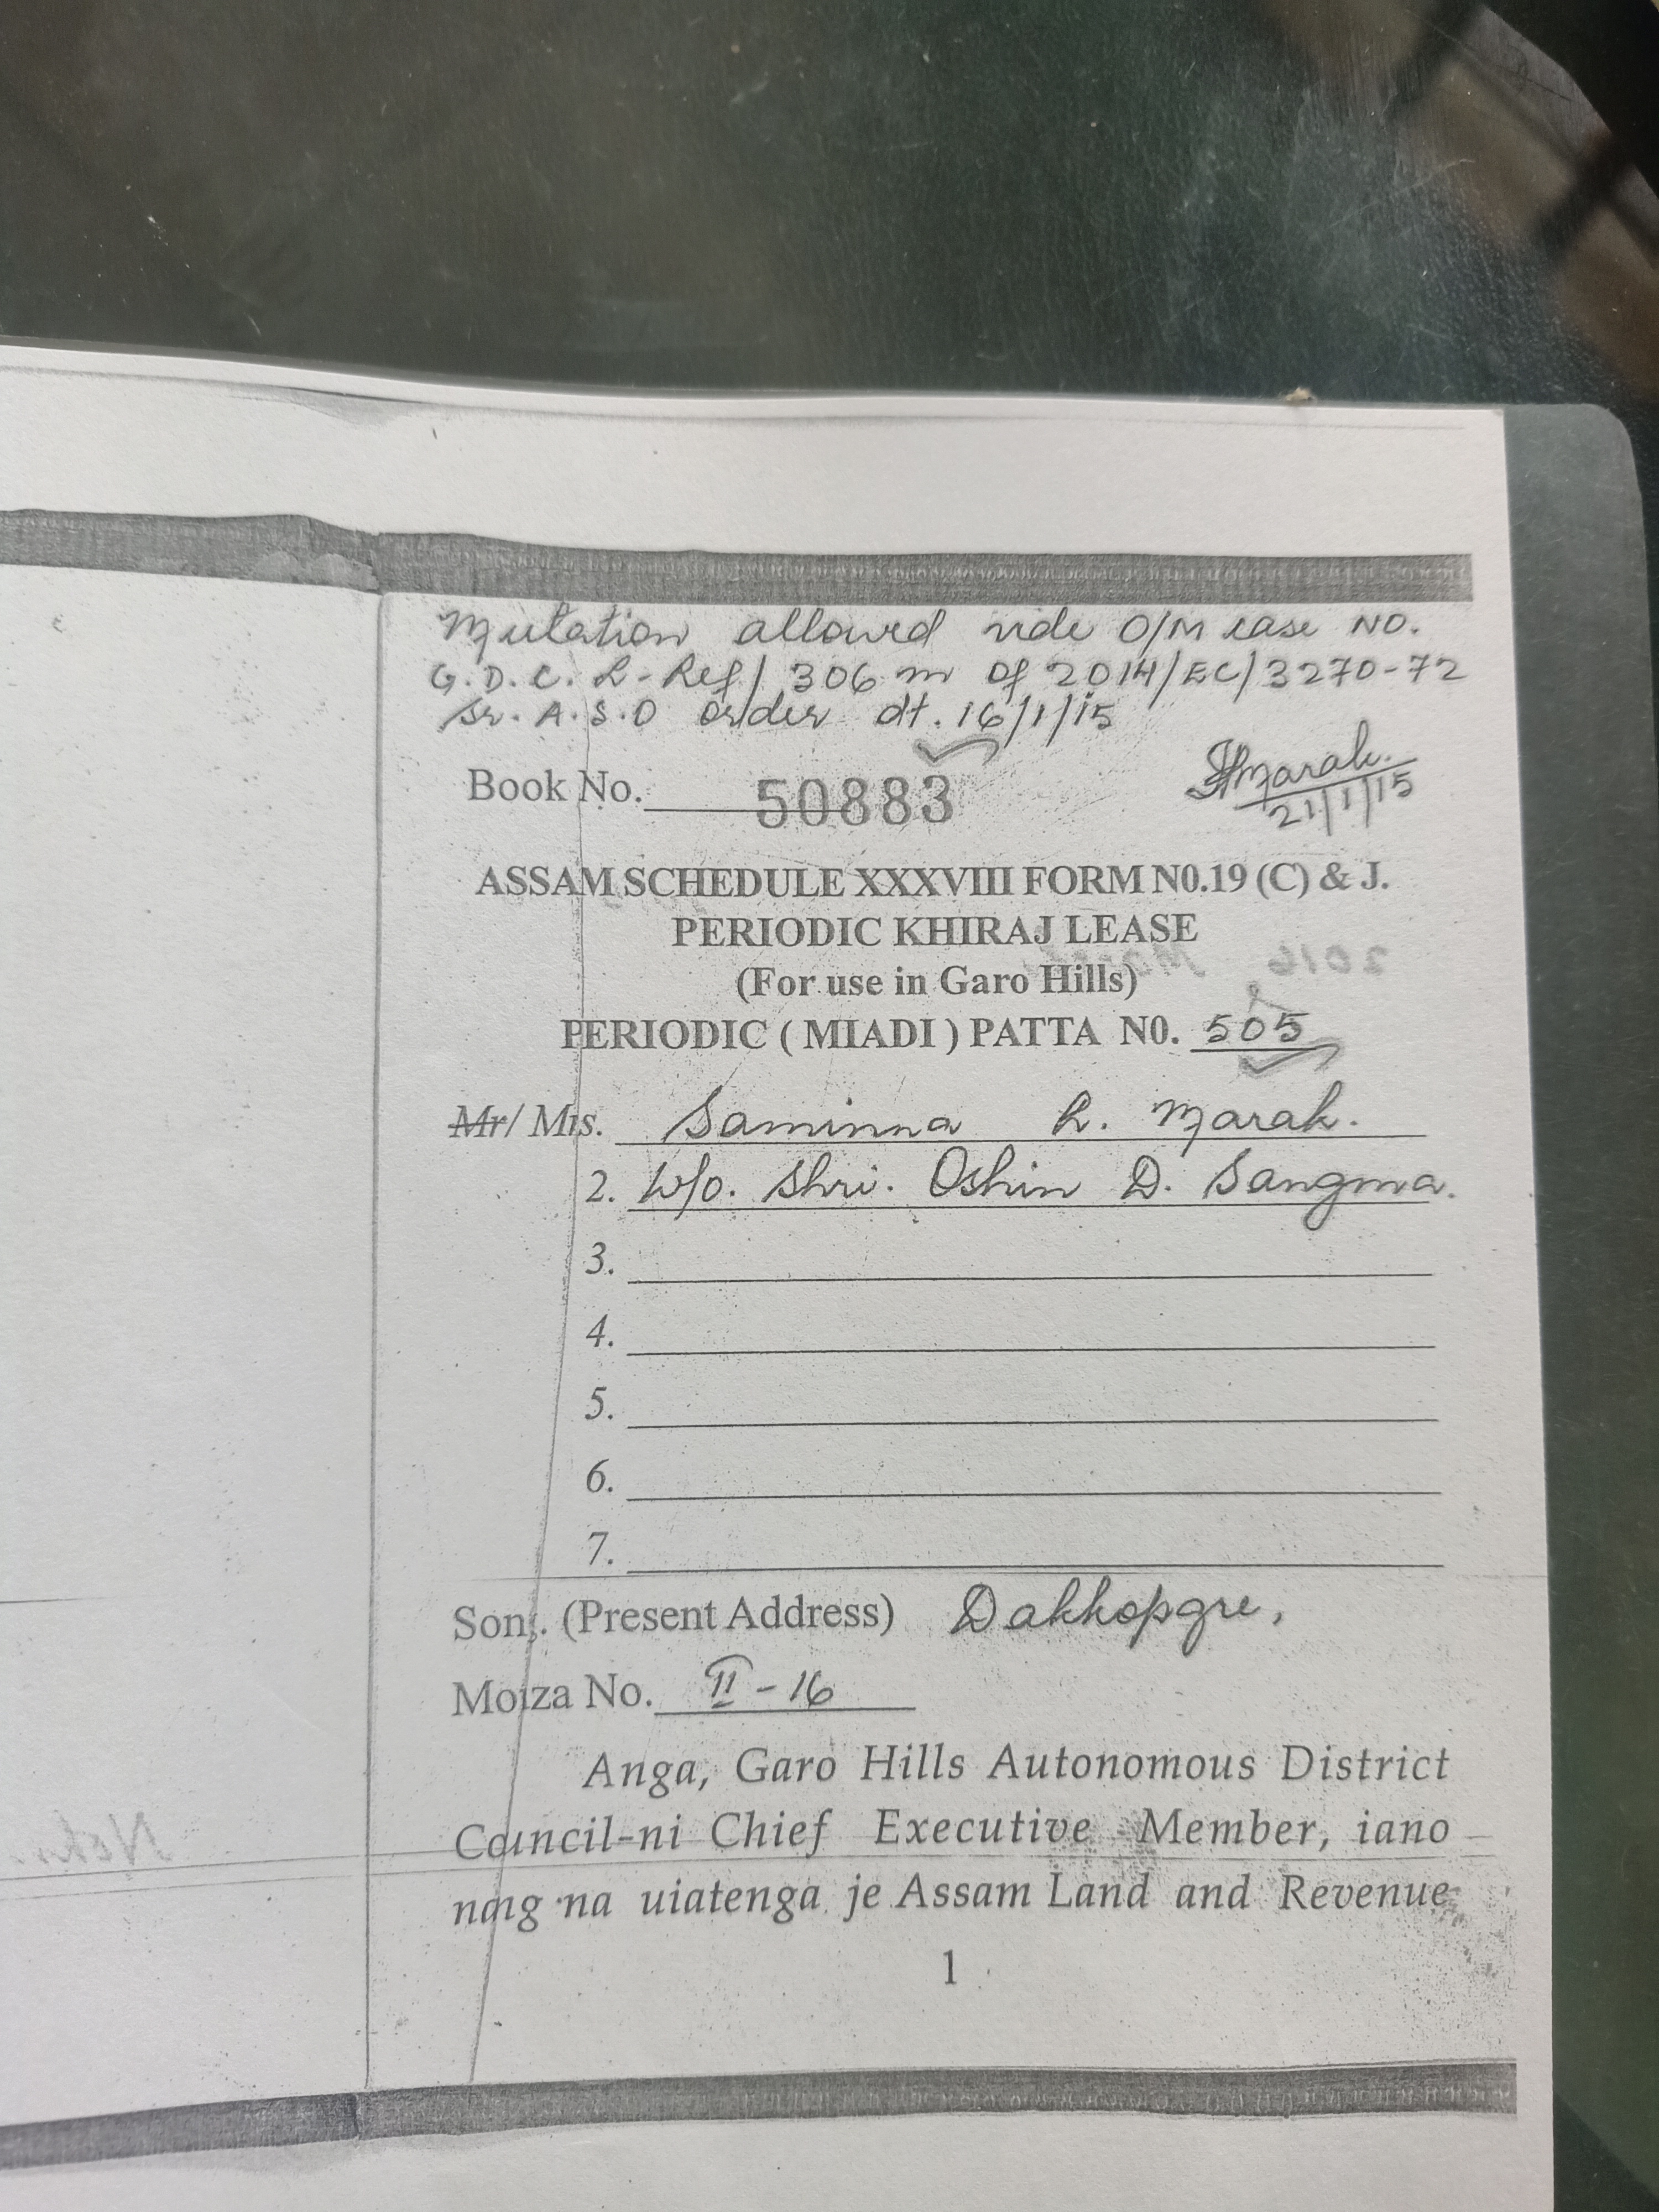 Mutation allowed vide O/M case NO.
G.D.C. R-Ref/306 m of 2014/EC/3270-72
Sr. A.S.O order dt. 16/1/15
Book No. 50883
Marak.
21/1/15
ASSAM SCHEDULE XXXVIII FORM N0.19 (C) & J.
PERIODIC KHIRAJ LEASE
(For use in Garo Hills)
PERIODIC ( MIADI ) PATTA N0. 505
Mr/ Mrs. Saminna R. Marak.
2. W/o. Shri. Oshin D. Sangma.
3.
4.
5.
6.
7.
Son,. (Present Address) Dakkopgre,
Moiza No. II-16
Anga, Garo Hills Autonomous District
Council-ni Chief Executive Member, iano
nang na uiatenga je Assam Land and Revenue
1